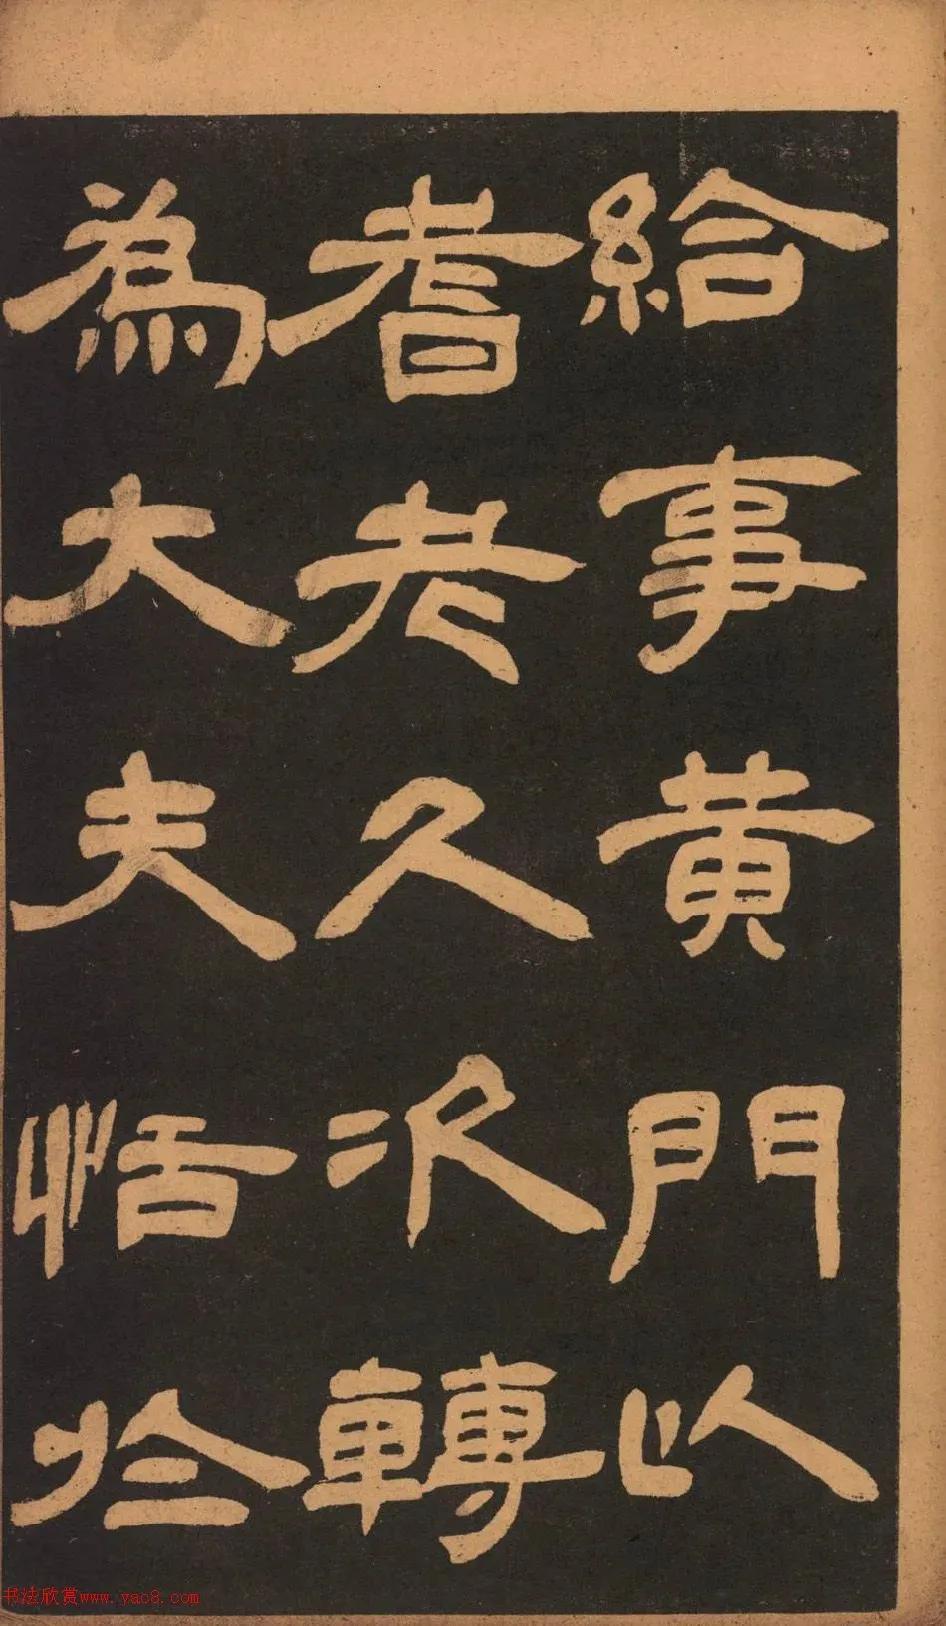 給事黃門以
耆老久次轉
為大夫恬於
书法欣赏www.yac8.com